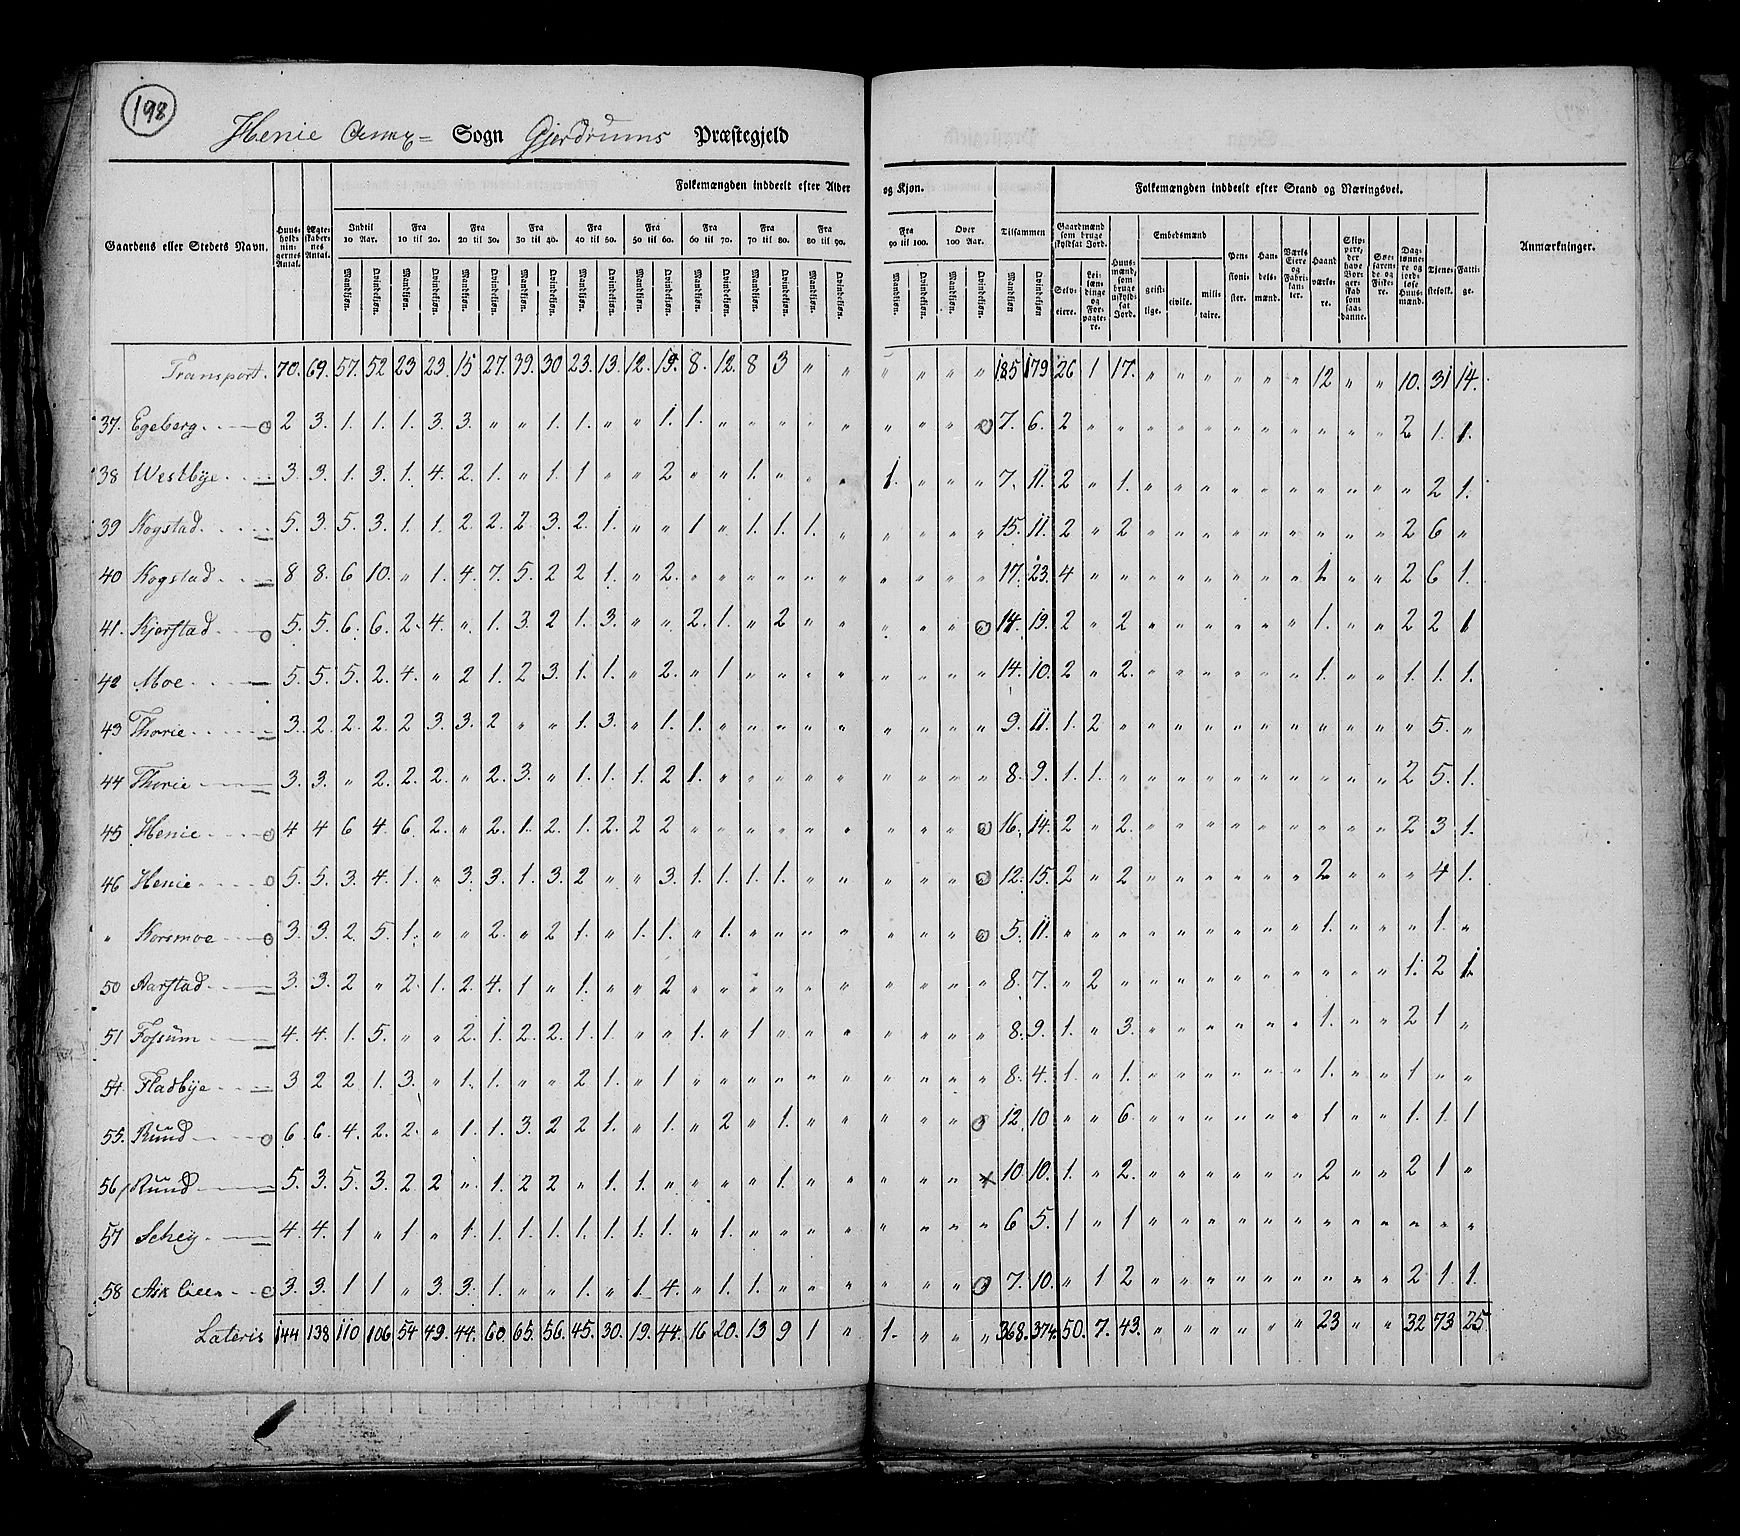 198
Henie Annex= Sogn Gjerdrums Præstegjeld
Folkemængden inddeelt efter Alder og Kjøn. Folkemængden inddeelt efter Stand og Næringsvei.
Gaardens eller Stedets Navn. Huusholdningernes Antal. Ægteskabernes Antal. Indtil 10 Aar. Fra 10 til 20. Fra 20 til 30. Fra 30 til 40. Fra 40 til 50. Fra 50 til 60. Fra 60 til 70. Fra 70 til 80. Fra 80 til 90. Fra 90 til 100. Over 100 Aar. Tilsammen Gaardmænd som bruge skyldsat Jord. Huusmænd, som bruge uskyldsat Jord. Embedsmænd Pensionister. Handelsmænd. Værks Eiere og Fabrikanter. Haandværkere. Skippere, der have Borgerskab som saadanne. Søefarende og Fiskere. Daglønnere og jordløse Huusmænd. Tjenestefolk. Fattige. Anmærkninger.
Mandkjøn. Qvindekjøn. Mandkjøn. Qvindekjøn. Mandkjøn. Qvindekjøn. Mandkjøn. Qvindekjøn. Mandkjøn. Qvindekjøn. Mandkjøn. Qvindekjøn. Mandkjøn. Qvindekjøn. Mandkjøn. Qvindekjøn. Mandkjøn. Qvindekjøn. Mandkjøn. Qvindekjøn. Mandkjøn. Qvindekjøn. Mandkjøn Qvindekjøn. Selveiere. Leilændinge og Forpagtere. geistlige. civile. militaire.
Transport. 70. 69. 57. 52 23 23. 15 27. 39. 30 23. 13. 12. 19. 8. 12. 8 3 " " " " " " 185 179 26 1 17. " " " " " " 12 " " 10. 31 14.
37. Egeberg. 2 3. 1. 1. 1. 3. 3. " " 1. 1. " " 1. 1. " " " " " " " " 7. 6. 2 " " " " " " " " " " " 2 1. 1.
38 Westbye. 3. 3. 1. 3. 1. 4. 2. 1. " 1. 1 " " 2 " " 1. " " " 1. " " " 7. 11. 2 " 1. " " " " " " " " " " 2 1.
39 Kogstad. 5. 3. 5. 3. 1. 1. 2. 2. 2 3. 2. 1. " " 1 " 1. 1. 1. " " " " " 15. 11. 2 " 2 " " " " " " " " " 2 6 "
40 Kogstad. 8 8. 6 10. " 1. 4. 7. 5. 2 2 1. " 2. " " " " " " " " " " 17. 23. 4 " " " " " " " " 1. " " 2 6 1.
41. Kjerstad. 5. 5. 6. 6. 2. 4. " 1. 3. 2 1. 3. " " 2. 1. " 2 " " " " " 14. 19. 2 " 2 " " " " " " 1. " " 2 2 1
42 Moe. 5. 5. 5. 2. 4. " 2 1. 2 3. 1. 1. " 2. " 1 " " " " " " " " 14. 10. 2 " 2. " " " " " " 1. " " 1. 1. 1.
43 Thorie. 3. 2 2. 2. 2 3. 3. 2 " " 1. 3. " 1. 1. " " " " " " " " " 9. 11. 1. 2 " " " " " " " " " " " 5. "
44 Thorie. 3. 3. " 2. 2. 2. " 2. 3. " 1. 1. 1. 2 1. " " " " " " " " " 8. 9. 1. 1. " " " " " " " " " " 2 5. 1.
45 Henie. 4 4 6 4. 6. 2. " 2. 1. 2. 1. 2. 2 2 " " " " " " " " " 16. 14. 2 " 2. " " " " " " " " " 2 3 1.
46 Henie. 5. 5. 3. 4. 1. " 3. 3. 1. 3. 2 " " 3. 1. 1. 1. 1. " " " " " 12. 15. 2 " 2 " " " " " " 2 " " " 4 1.
" Korsmoe. 3. 3. 2. 5. 1. " " 2. " 2 1. " 1. 1. " 1. " " " " " " " 5. 11. " " " " " " " " " 1. " " " 1. "
50 Aarstad. 3. 3. 2 " 2. 1. 2. 4. 1 " 1. " " 2 " " " " " " " " " " 8. 7. " 2 " " " " " " " " " " 1. 2 1.
51 Fossum. 4. 4. 1. 5. " " 2. 1. 2. 2. 1. 1. " " 1. " 1 " " " " " " " 8. 9. 1. " 3. " " " " " " 1. " " 2 1 "
54. Fladbye. 3 2 2 1. 3. " 1. 1. " " 2 1. " 1 " " " " " " " " " " 8. 4. 1. " 1. " " " " " " 1. " " 1 " "
55. Ruud. 6. 6. 4. 2. 2. " 1. 1. 3. 2 2 1. " 1. " 2 " 1. " " " " " 12. 10 " " 6. " " " " " " 1 " " 1. 1. 1
56 Ruud. 5. 3. 5. 3. 2 2 " 1. 2 2 " 1. 1. " " " " 1. " " " " " 10 10. 1. " 2. " " " " " " 2 " " 2 1 "
57 Schey. 4. 4. 1 " 1 " 1. 1. 1. 1. 1. 1. 1. 1. " 1. " " " " " " " " 6 5. 1 " 1 " " " " " " " " " " " "
58 Ask 3. 3. 1 1 " 3. 3. 1. " " 1. " 1. 4. " 1. 1. " " " " " " 7. 10. " 1 2 " " " " " " " " " 2 1. 1.
Lateris 144 138 110 106 54 49. 44. 60. 65. 56. 45. 30. 19. 44. 16 20. 13 9 1 " 1. " " " 368. 374. 50. 7. 43. " " " " " " 23 " " 32 73 25.